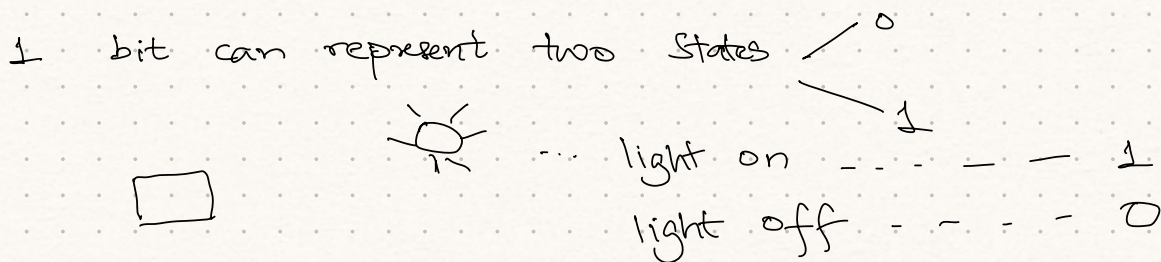 1 bit can represent two states 0
1
light on ----- 1
light off ---- 0